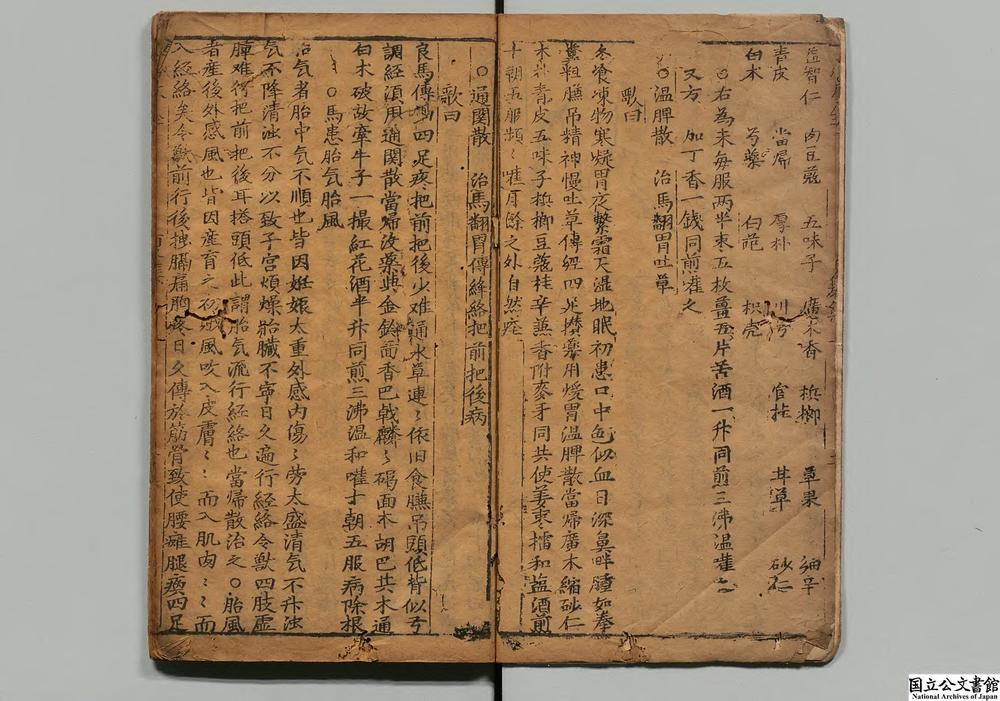 益智仁 肉豆蔻 五味子 廣木香 梹榔 草果 細辛
青皮 當帰 厚朴 川芎 官桂 甘草 砂仁
白术 芍藥 白芷 枳壳
○右為末每服两半枣五枚薑五片苦酒一升同煎三沸温嚾之
又方 加丁香一錢同前嚾之
○温脾散 治馬翻胃吐草
歌曰
冬飡凍物寒凝胃夜繫霜天濕地眠初患口中色似血日深鼻畔腫如拳
糞粗臕吊精神慢吐草傳經四足攣藥用煖胃温脾散當帰廣木縮砂仁
木朴青皮五味子梹榔豆蔻桂辛蕉香附麥牙同共使姜枣擂和盐酒煎
十朝五服頻〻嚾月餘之外自然痊
○通関散 治馬翻胃傳絳絡把前把後病
歌曰
良馬傳 四足疼把前把後少难通水草連〻依旧食臕吊頭低背似弓
調經湏用通関散當帰没藥與金鈴茴香巴戟麟〻碣面木胡巴共木通
白木破故牽牛子一撮紅花酒半升同煎三沸温和嚾十朝五服病除根
○馬患胎气胎風
治气者胎中气不順也皆因姙娠太重外感内傷〻劳太盛清气不升浊
气不降清浊不分以致子宫煩燥胎臓不寧日久遍行経絡令獸四肢虚
腫难行把前把後耳搭頭低此謂胎气流行経絡也當帰散治之○胎風
者産後外感風也皆因産育之 風吹入皮膚〻〻而入肌肉〻〻而
入経絡矣令獸前行後拽膈痛胸疼日久傳於筋骨致使腰瘫腿瘓四足
国立公文書館
National Archives of Japan